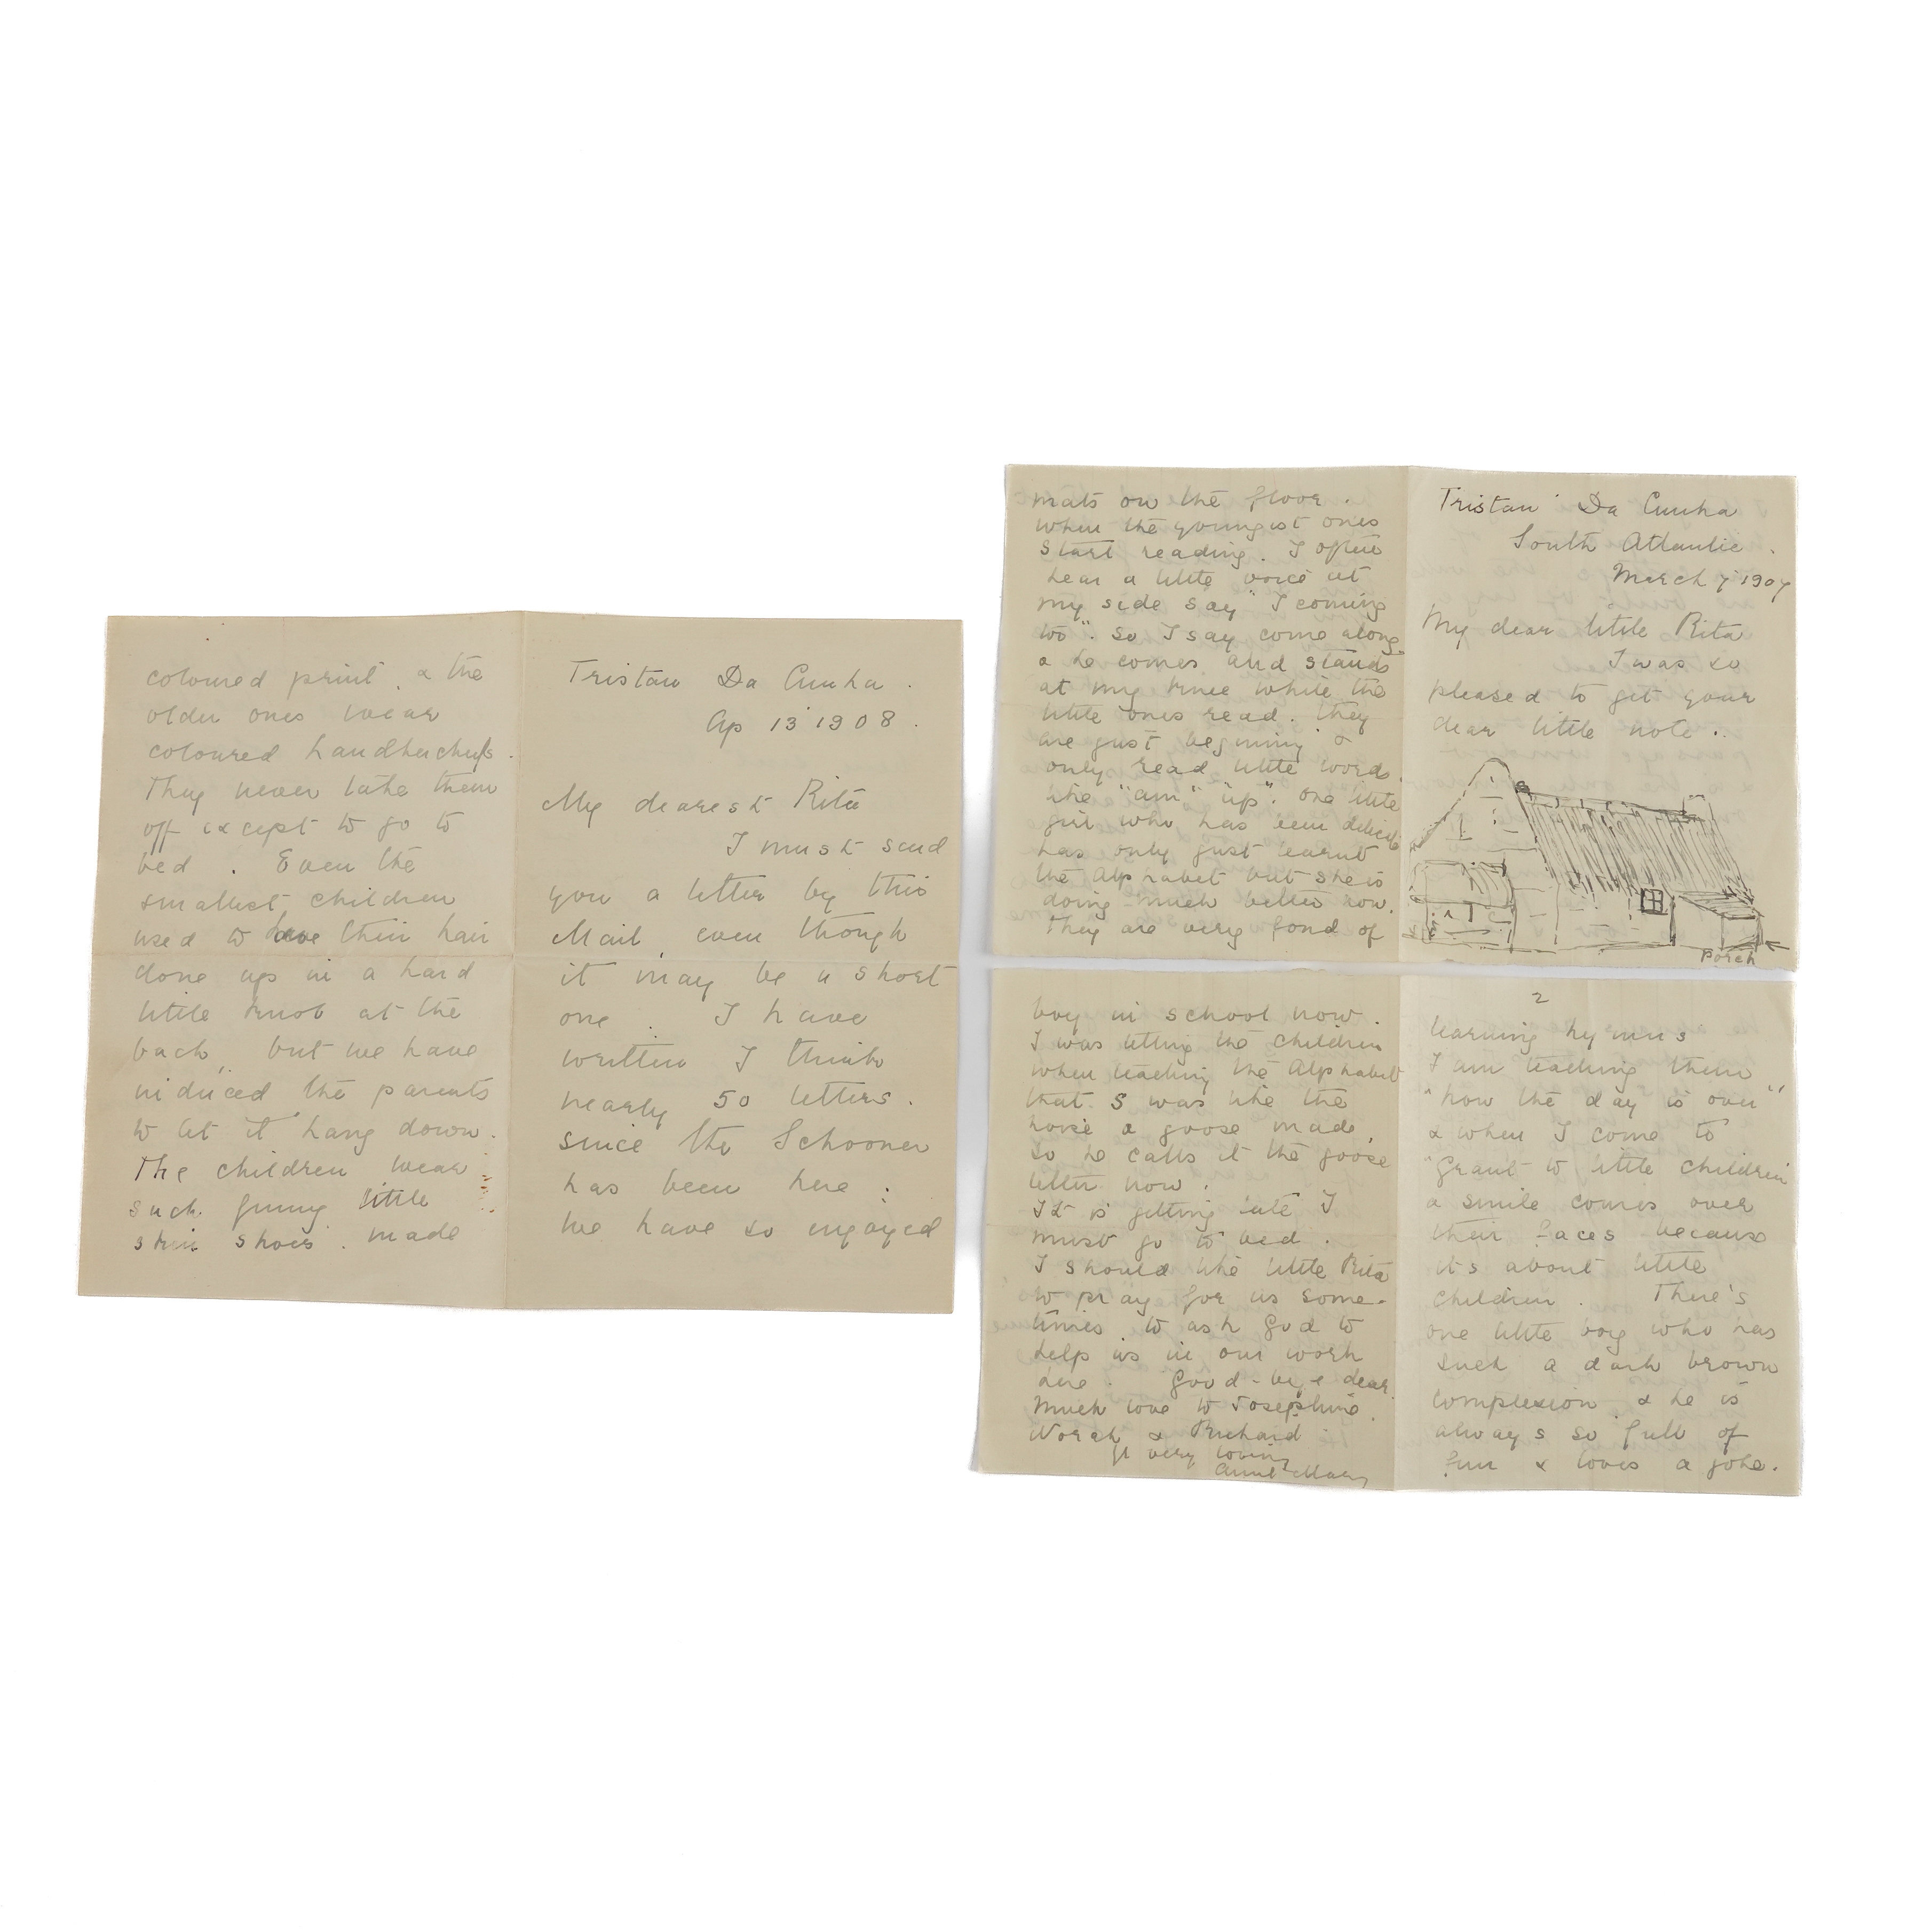 coloured print & the
older ones wear
coloured handkerchiefs.
They never take them
off except to go to
bed. Even the
smallest children
used to have their hair
done up in a hard
little knot at the
back, but we have
induced the parents
to let it hang down.
The children wear
such funny little
skin shoes. made
Tristan Da Cunha.
Ap 13 1908.
My dearest Rita
I must send
you a letter by this
Mail even though
it may be a short
one. I have
written I think
nearly 50 letters.
since the Schooner
has been here:
We have so enjoyed
mats on the floor.
When the youngest ones
start reading. I often
hear a little voice at
my side say "I coming
too". So I say come along
& he comes and stands
at my knee while the
little ones read. They
are just beginning &
only read little words
like "am" "up". One little
girl who has been delicate
has only just learnt
the Alphabet but she is
doing much better now.
They are very fond of
Tristan Da Cunha
South Atlantic.
March 7 1907
My dear little Rita
I was so
pleased to get your
dear little note..
Porch
boy in school now.
I was telling the children
when teaching the Alphabet
that S was like the
noise a goose made,
so he calls it the goose
letter now.
It is getting late I
must go to bed.
I should like little Rita
to pray for us some-
times, to ask God to
help us in our work
here. Good-bye dear.
Much love to Josephine,
Norah & Richard
Yr very loving
Aunt Mary
2
learning hymns
I am teaching them
"Now the day is over"
& when I come to
"Grant to little children
a smile comes over
their faces because
it's about little
children. There's
one little boy who has
such a dark brown
complexion & he is
always so full of
fun & loves a joke.